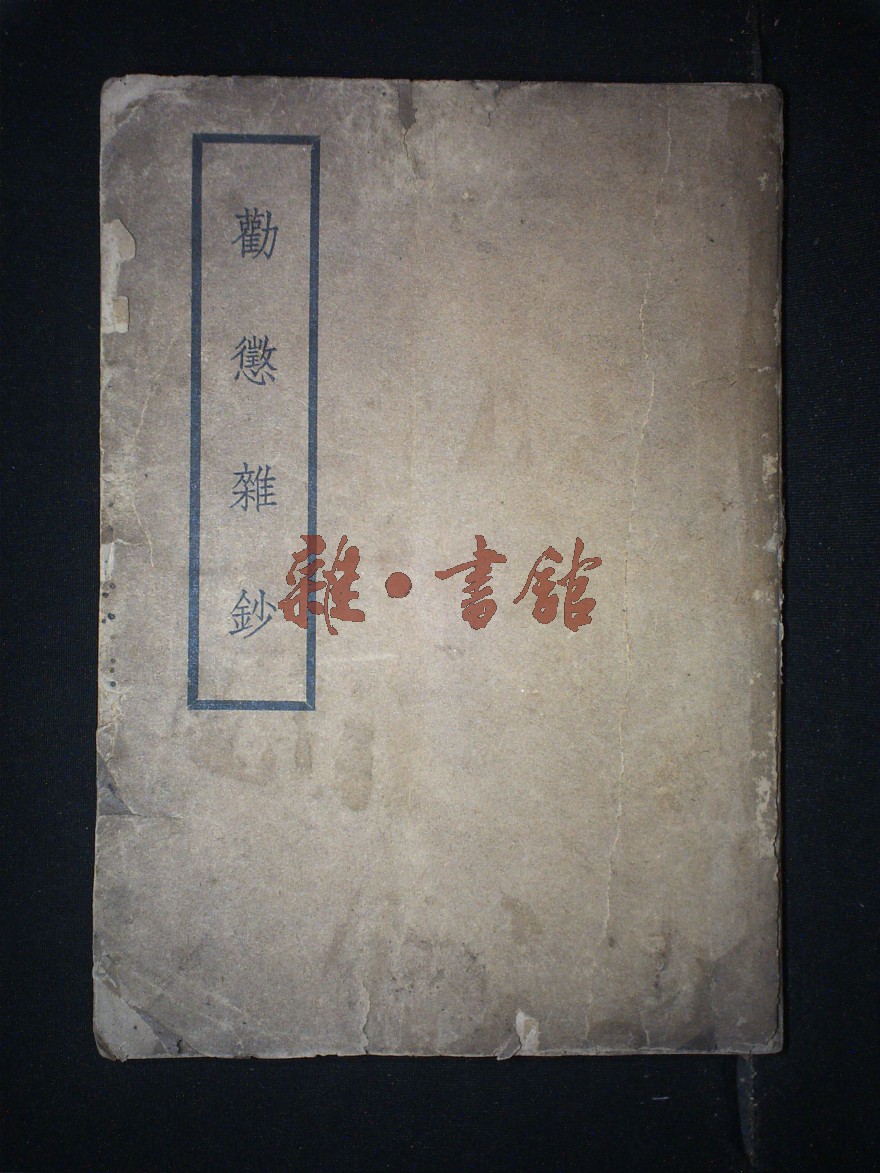 勸懲雜鈔
雜·書館